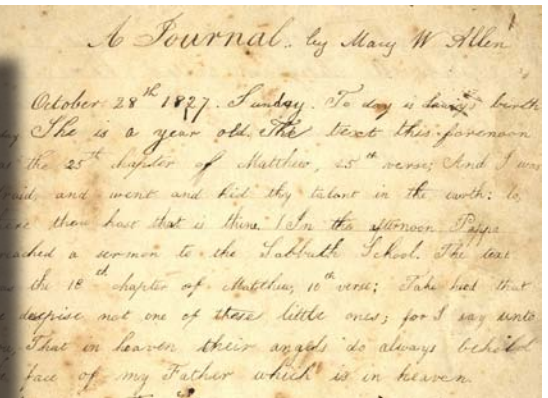 A Journal. by Mary W Allen
October 28th 1827. Sunday. To day is birth
day She is a year old. The text this forenoon
as the 25th chapter of Matthew, 25th verse; And I was
fraid, and went and hid thy talant in the earth: lo,
ere thou hast that is thine. In the afternoon Pappa
reached a sermon to the Sabbath School. The text
as the 18th chapter of Matthew, 10th verse; Take heed that
e despise not one of these little ones; for I say unto
ou, That in heaven their angels do always behold
e face of my Father which is in heaven.